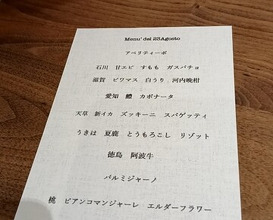 Menu' del 25Agosto
アペリティーボ
石川 甘エビ すもも ガスパチョ
滋賀 ビワマス 白うり 河内晩柑
愛知 鱧 カポナータ
天草 新イカ ズッキーニ スパゲッティ
うきは 夏鹿 とうもろこし リゾット
徳島 阿波牛
パルミジャーノ
桃 ビアンコマンジャーレ エルダーフラワー